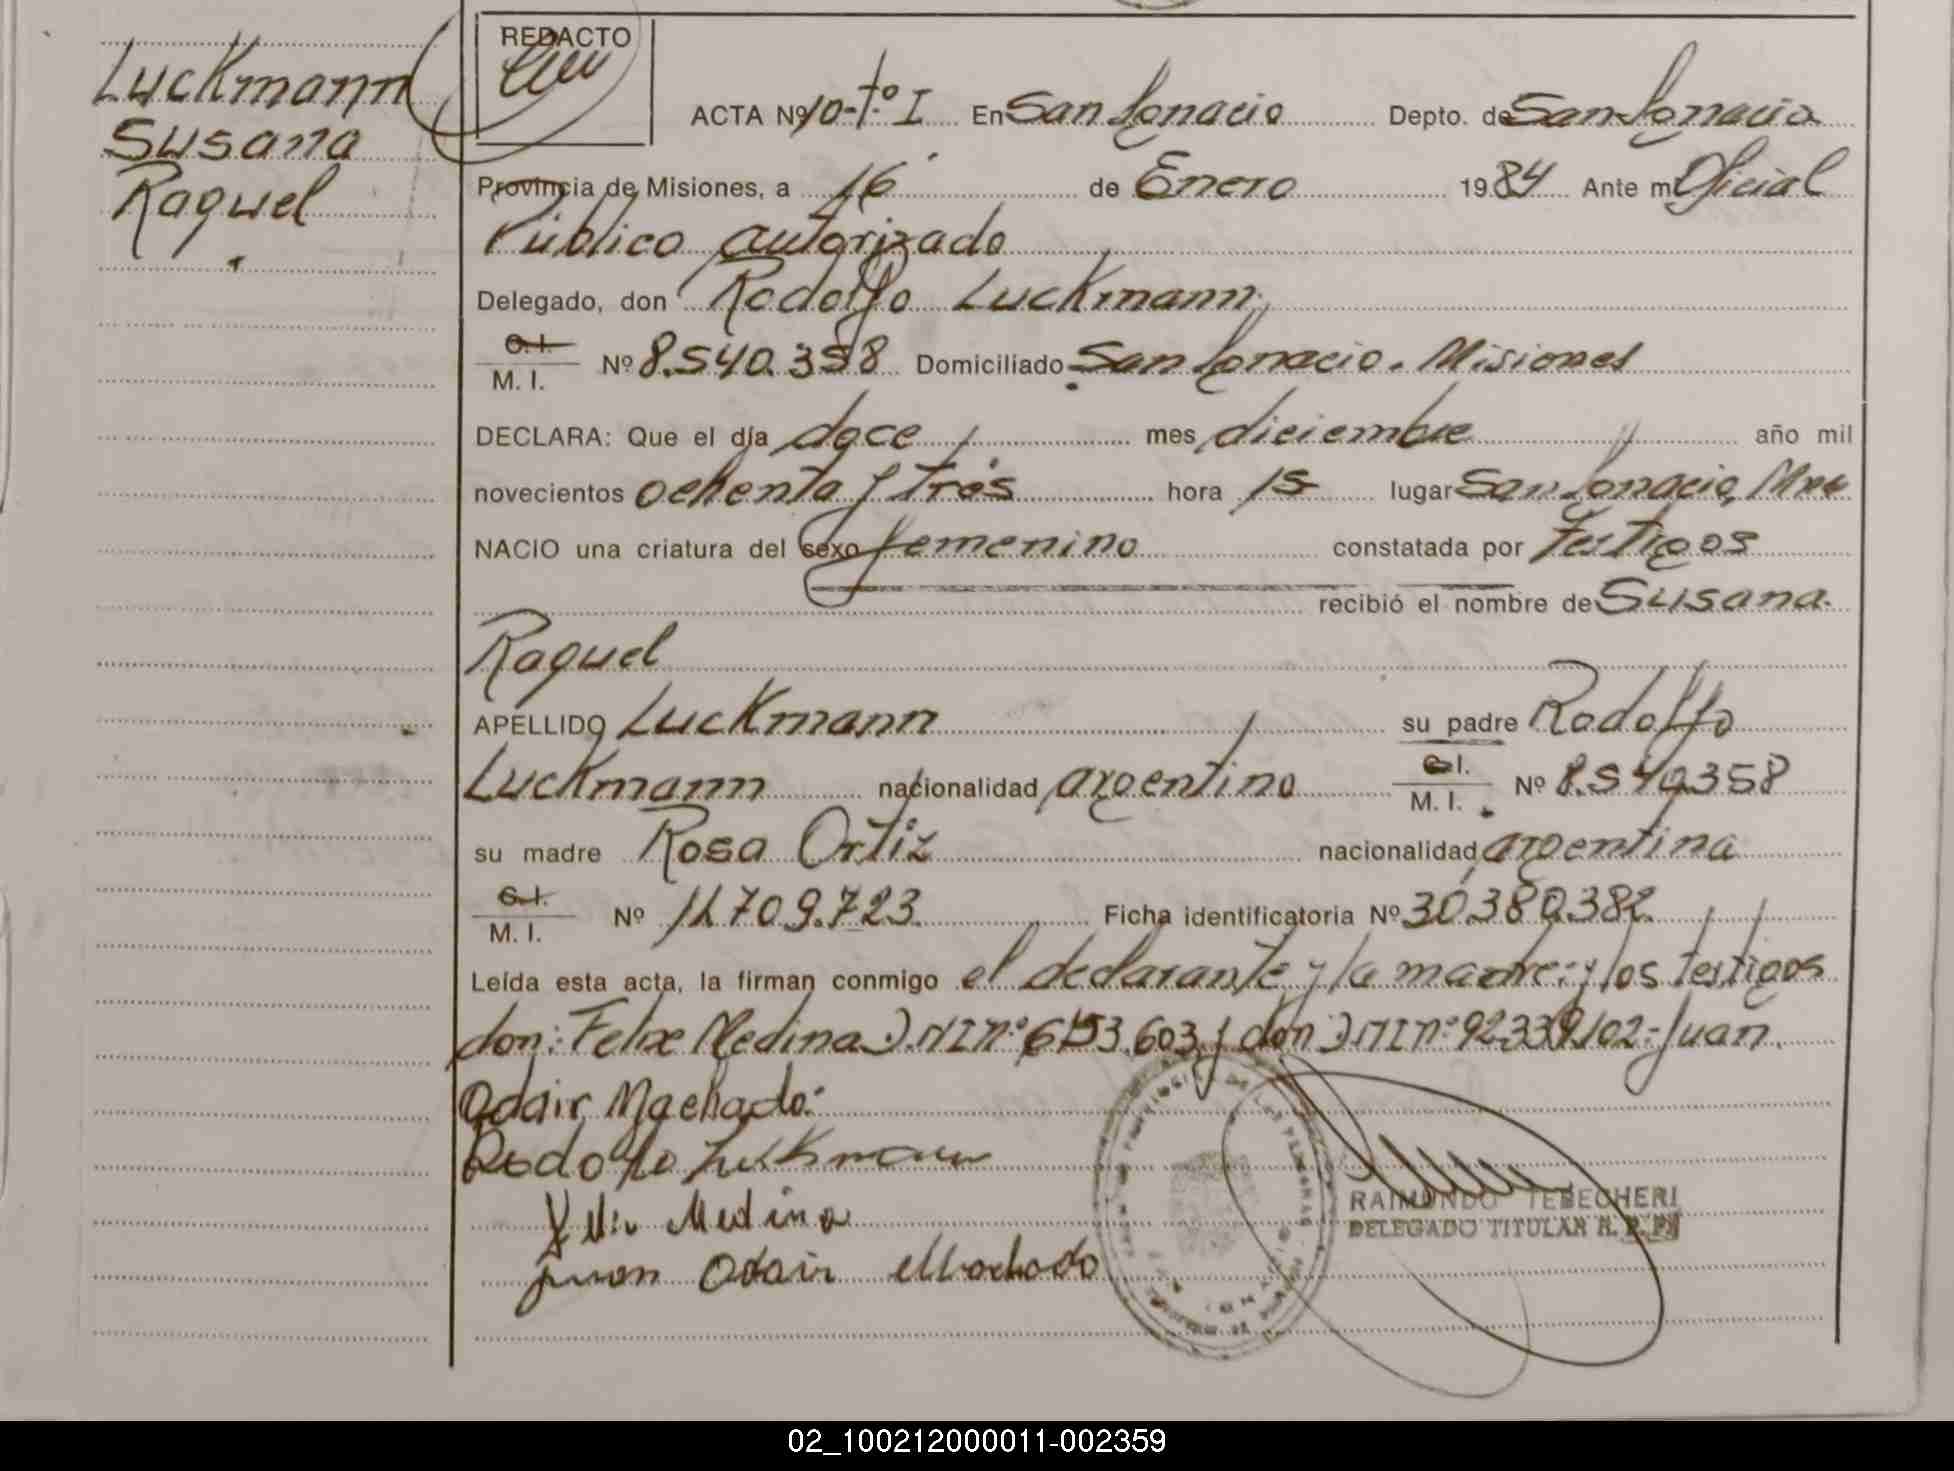 Luckmann
Susana
Raquel
REDACTO
ACTA Nº 10-Tº I En San Ignacio Depto. de San Ignacio
Provincia de Misiones, a 16 de Enero 1984 Ante mí Oficial
Público autorizado
Delegado, don Rodolfo Luckmann
C. I.
M. I. Nº 8.540.358 Domiciliado San Ignacio. Misiones
DECLARA: Que el día doce mes diciembre año mil
novecientos ochenta y tres hora 15 lugar San Ignacio, Mnes
NACIO una criatura del sexo femenino constatada por Testigos
recibió el nombre de Susana
Raquel
APELLIDO Luckmann su padre Rodolfo
Luckmann nacionalidad argentino C. I.
M. I. Nº 8.540.358
su madre Rosa Ortiz nacionalidad argentina
C. I.
M. I. Nº 11.709.723 Ficha identificatoria Nº 30.380.382
Leída esta acta, la firman conmigo el declarante y la madre: y los testigos
don: Felix Medina D.N.I nº don D.N.I nº 92.339.102-Juan
Odair Machado:
Rodolfo Luckmann
Felix Medina
juan Odair Machado
RAIMUNDO TEBECHERI
DELEGADO TITULAR R. P. P.
02_100212000011-002359